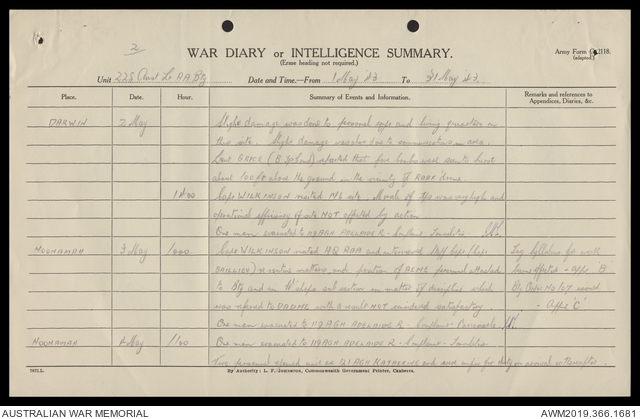 2
WAR DIARY or INTELLIGENCE SUMMARY.
(Erase heading not required.)
Army Form C.2118.
(adapted.)
Unit 225 Aust Lt AA Bty
Date and Time.—From 1 May 43 To 31 May 43
Place. Date. Hour. Summary of Events and Information. Remarks and references to Appendices, Diaries, &c.
DARWIN 2 May Slight damage was done to personal and living quarters on
this site. Slight damage was also done to communications in area.
Lieut GRICE reported that five bombs were seen to burst
about 100 ft above the ground in the vicinity of RAAF 'drome.
1400 Capt WILKINSON visited site. Morale of was very high and
operational efficiency of site NOT affected by action
One man evacuated to 119 AGH ADELAIDE R -
NOONAMAH 3 May 1000 Capt WILKINSON visited HQ RAA and interviewed Staff Capt (Capt
BAILLIEU) re various matters and position of AEME personnel attached
Trg Syllabus for week
to Bty and on matters of discipline which
Bty issued
was referred to DADME with a result NOT considered satisfactory
- Appx 'C'
One man evacuated to 119 AGH ADELAIDE R -
NOONAMAH 4 May 1100 One man evacuated to 119 AGH ADELAIDE R -
Two personnel 121 AGH KATHERINE and were unfit for duty on arrival
By Authority: L. F. Johnston, Commonwealth Government Printer, Canberra.
AUSTRALIAN WAR MEMORIAL
AWM2019.366.1681